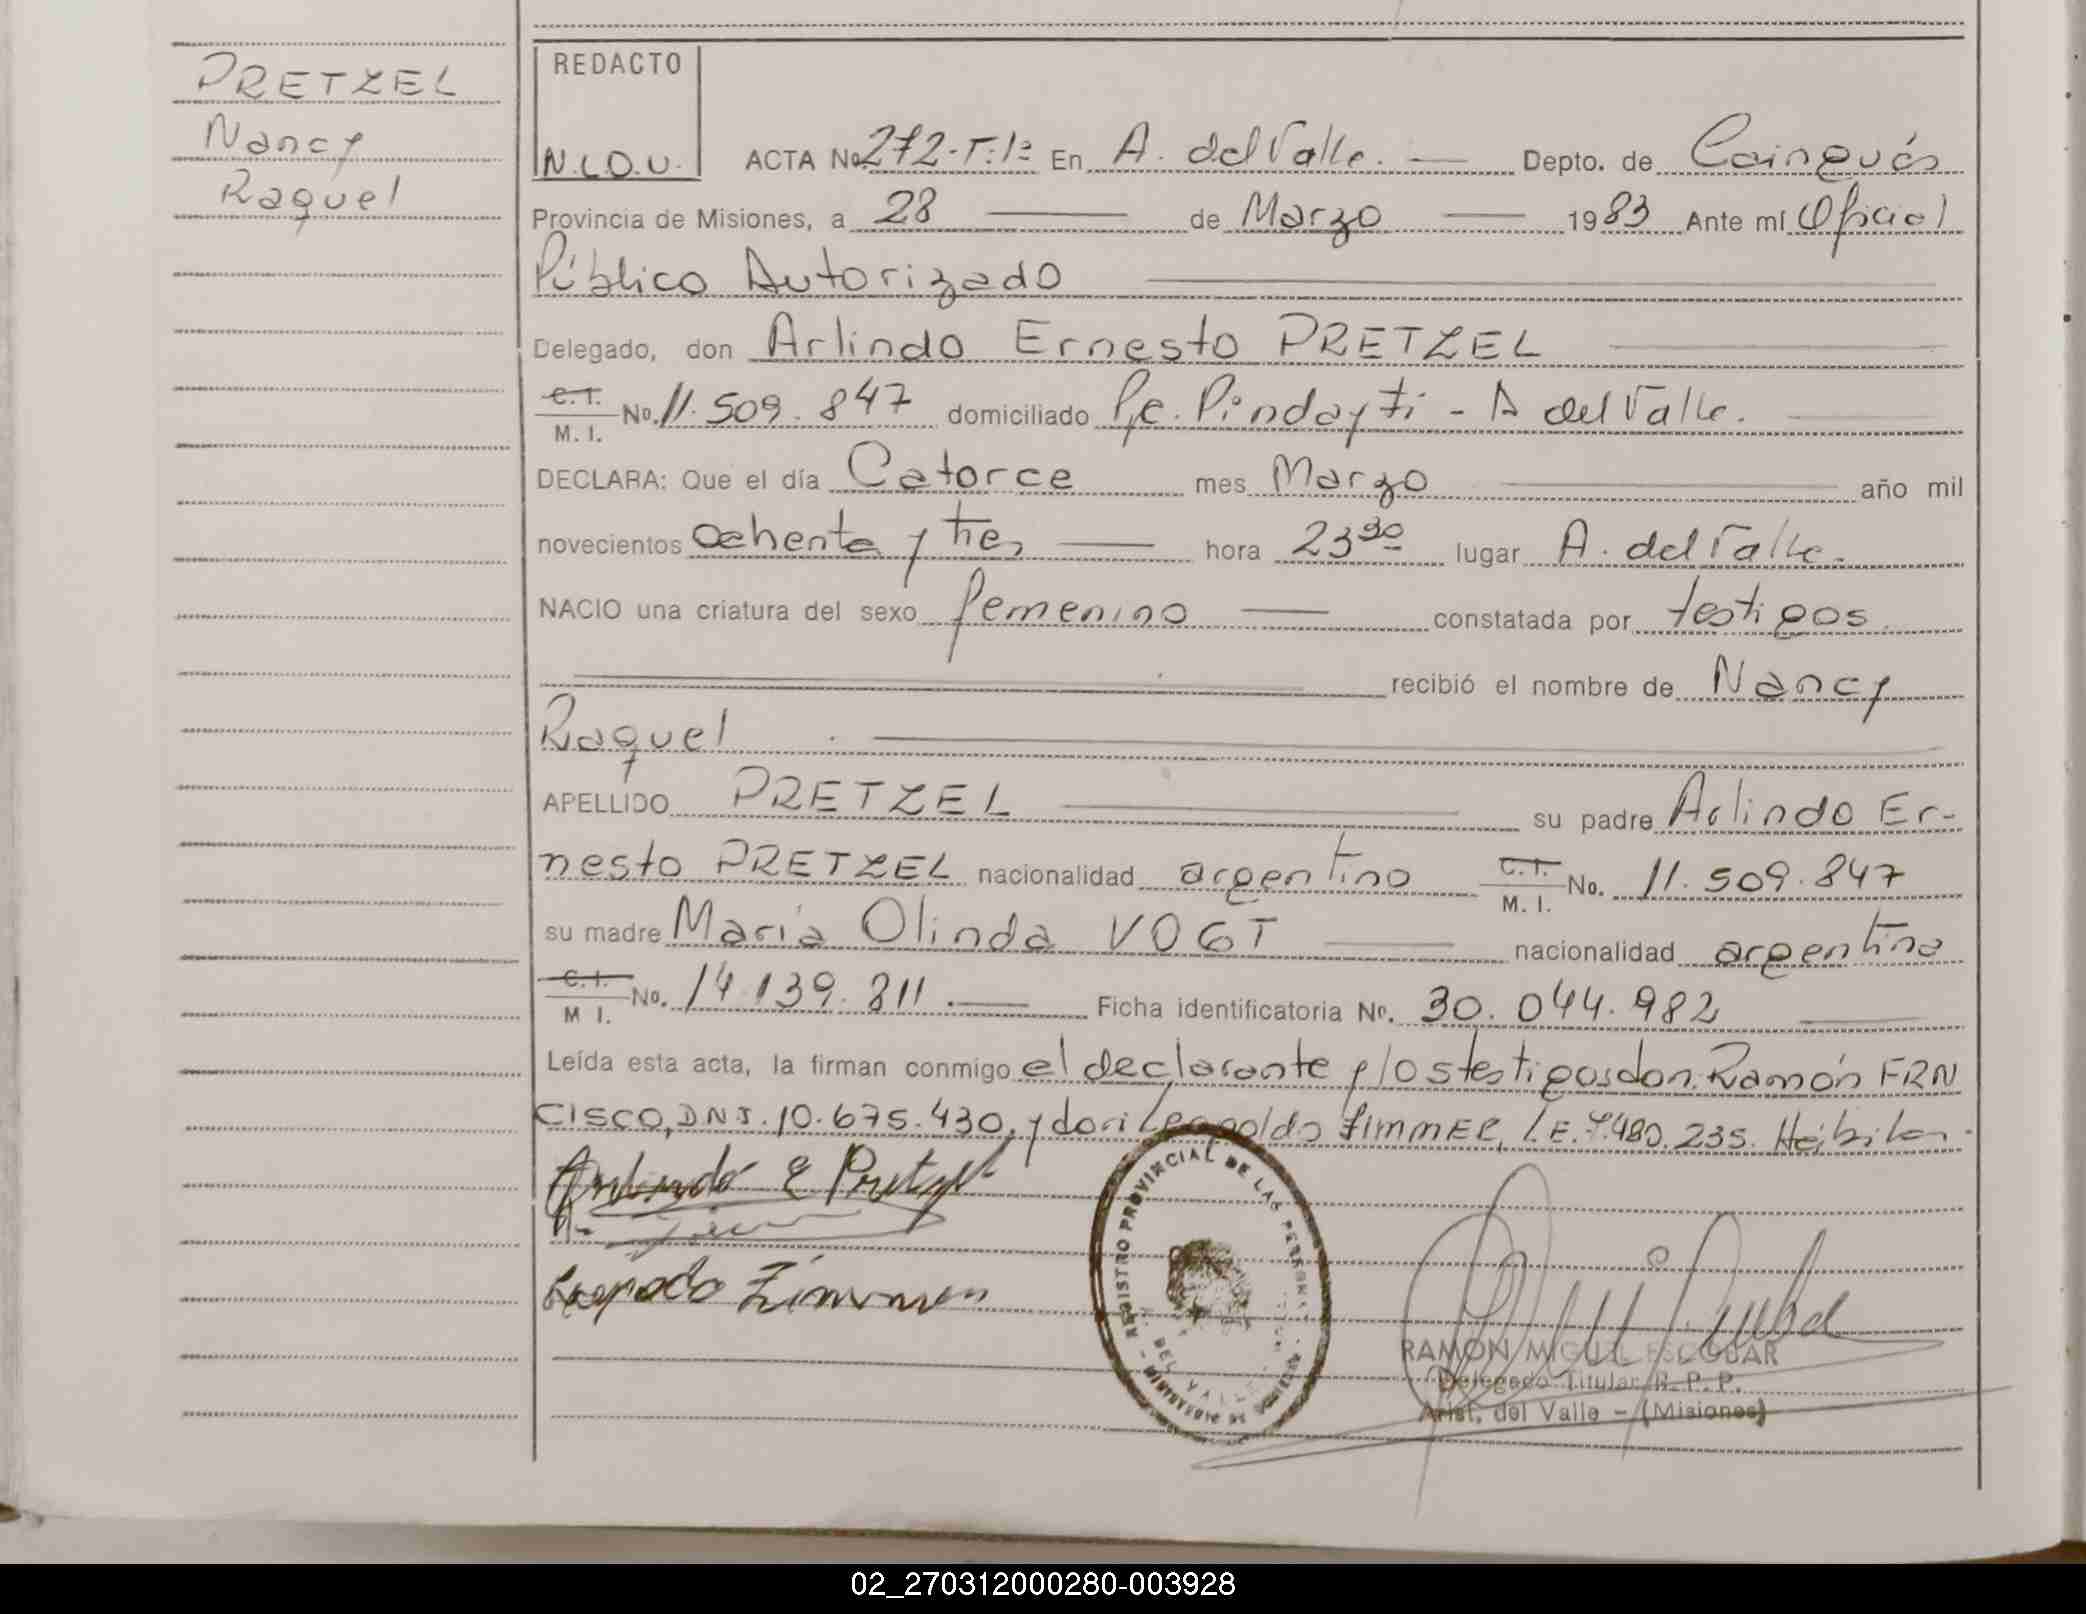 PRETZEL
Nancy
Raquel
REDACTO
N.L.O.U.
ACTA No 272-T:1º En A. del Valle. Depto. de Cainguás
Provincia de Misiones, a 28 de Marzo 1983 Ante mí Oficial
Público Autorizado
Delegado, don Arlindo Ernesto PRETZEL
C.I. M. I. No. 11.509.847 domiciliado Pje. Pindaytí - A del Valle.
DECLARA: Que el día Catorce mes Marzo año mil
novecientos ochenta y tres hora 23 30 lugar A. del Valle.
NACIO una criatura del sexo femenino constatada por testigos
recibió el nombre de Nancy
Raquel
APELLIDO PRETZEL su padre Arlindo Er-
nesto PRETZEL nacionalidad argentino C.I. M. I. No. 11.509.847
su madre María Olinda VOGT nacionalidad argentina
C.I. M I. No. 14.139.811. Ficha identificatoria No. 30.044.982
Leída esta acta, la firman conmigo el declarante y los testigos don. Ramón FRN
CISCO, DNI. 10.675.430, y don Leopoldo ZIMMER, L.E. 7.480.235. Hábiles.
Arlindo E Pretzel
Leopoldo Zimmer
REGISTRO PROVINCIAL DE LAS PERSONAS
DEL VALLE
MINISTERIO DE GOBIERNO
RAMON MIGUEL ESCOBAR
Delegado Titular R. P. P.
Arist. del Valle - (Misiones)
02_270312000280-003928